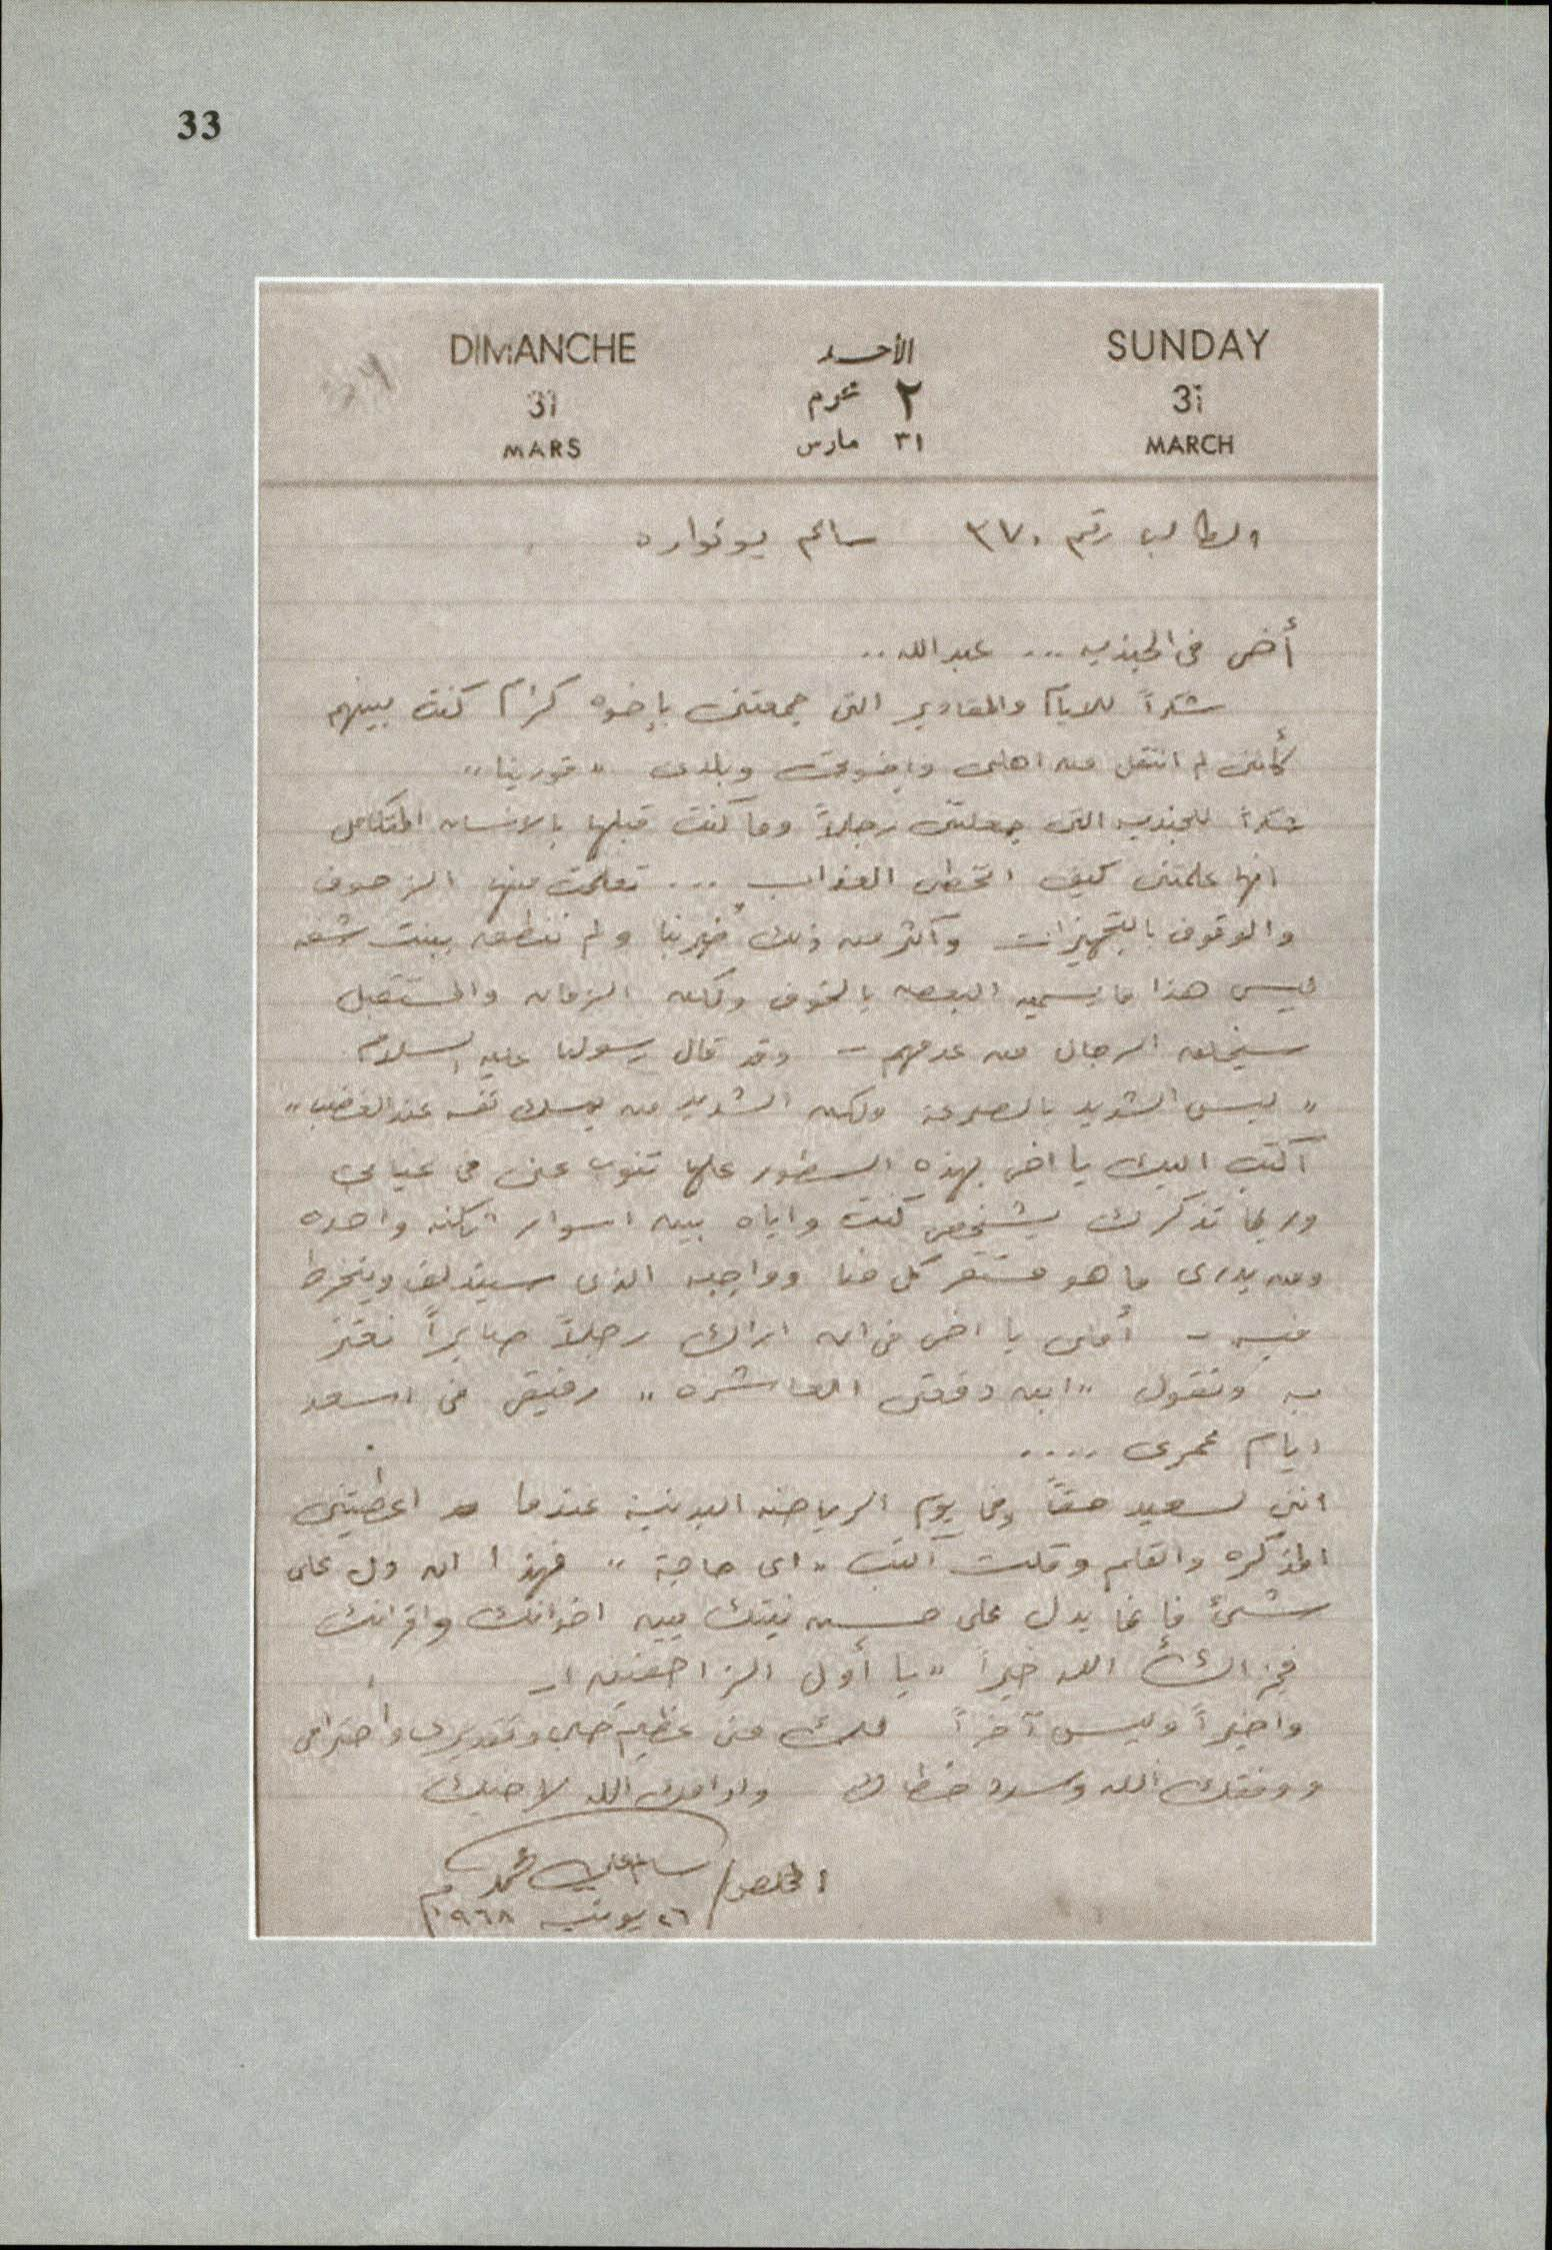 33
DIMANCHE الأحد SUNDAY
31 ٢ محرم 31
MARS ٣١ مارس MARCH
الطالب رقم ٣٧٠ سالم بو نواره
أخى فى الجنديه ... عبد الله ..
شكراً للايام والمقادير التى جمعتنى بإخوه كرام كنت بينهم
كأننى لم انتقل من اهلى واخوتى وبلدى " قورينا "
شكراً للجنديه التى جعلتنى رجلاً وما كنت قبلها بالانسان المتكامل
انها علمتنى كيف اتخطى العذاب ... تعلمت منها الزحوف
والوقوف بالتجهيزات وأكثر من ذلك ولم ننطق ببنت شفه
ليس هذا ما يسميه البعض بالخوف ولكن الزمان والمستقبل
سيخلق الرجال من عدمهم - وقد قال رسولنا عليه السلام
" ليس الشديد بالصرعة ولكن الشديد من يمسك نفسه عند الغضب "
أكتب اليك يا اخى بهذه السطور علها تنوب عنى فى غيابى
وربما تذكرك بشخص كنت واياه بين اسوار ثكنه واحده
ومن يدرى ما هو مستقر كل منا وواجبه الذى وينخرط
فيه - أملى يا اخى فى ان اراك رجلاً صابراً نعتز
به ونقول " ابن دفعتى العاشره " رفيقى فى اسعد
ايام عمرى ....
اننى لسعيد حقاً وفى يوم الرياضه البدنية عندما اعطيتنى
المذكره والقلم وقلت اكتب " اى حاجة " فهذا ان دل على
شىئ فإنما يدل على حسن نيتك بين اخوانك واقرانك
فجزاك الله خيراً " يا أول الزاحفين "
واخيراً وليس آخراً فلك منى عظيم حبى وتقديرى واحترامى
ووفقك الله وسدد خطاك وادامك الله لاخيك
المخلص / سالم على محمد
٢٦ يونيه ١٩٦٨م